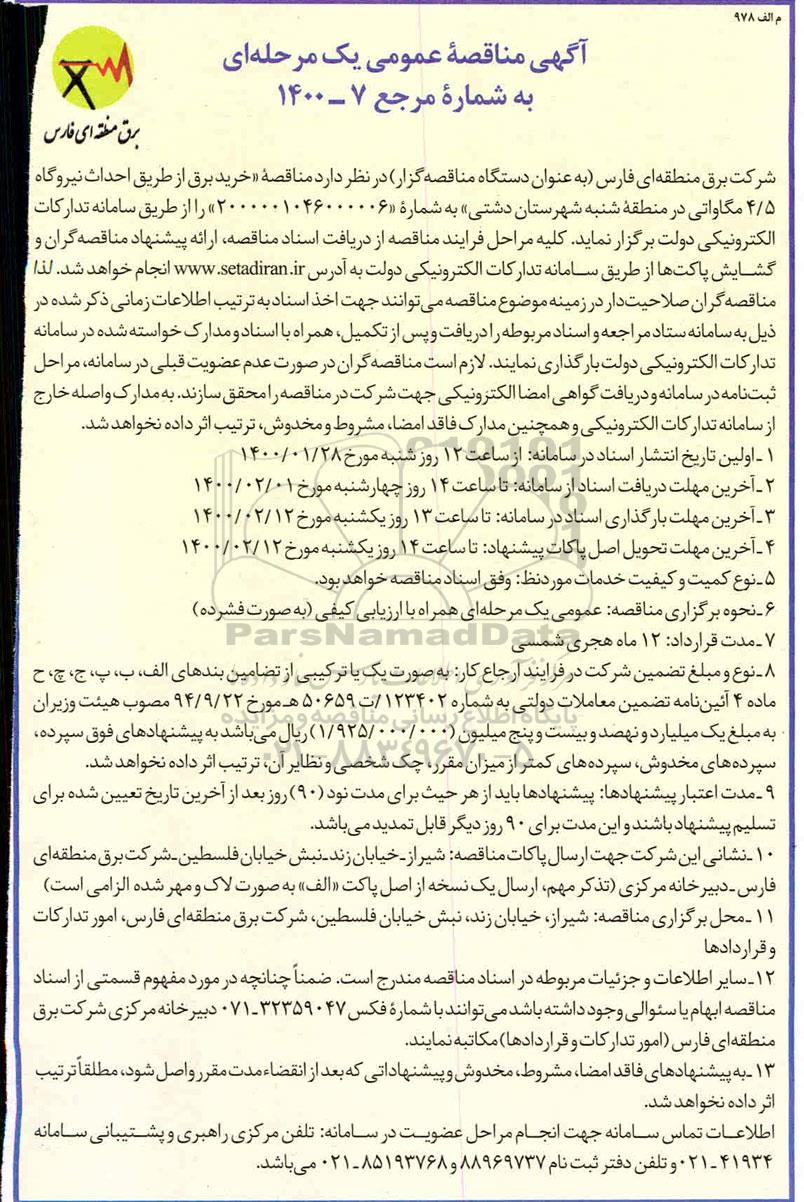 م الف ۹۷۸
آگهی مناقصهٔ عمومی یک مرحله‌ای
به شمارهٔ مرجع ۷ ـ ۱۴۰۰
برق منطقه‌ای فارس
شرکت برق منطقه‌ای فارس (به عنوان دستگاه مناقصه‌گزار) در نظر دارد مناقصهٔ «خرید برق از طریق احداث نیروگاه
۴/۵ مگاواتی در منطقهٔ شنبه شهرستان دشتی» به شمارهٔ «۲۰۰۰۰۰۱۰۴۶۰۰۰۰۰۶» را از طریق سامانه تدارکات
الکترونیکی دولت برگزار نماید. کلیه مراحل فرایند مناقصه از دریافت اسناد مناقصه، ارائه پیشنهاد مناقصه‌گران و
گشـایش پاکت‌ها از طریق سـامانه تدارکات الکترونیکی دولت به آدرس www.setadiran.ir انجام خواهد شد. لذا
مناقصه‌گران صلاحیت‌دار در زمینه موضوع مناقصه می‌توانند جهت اخذ اسناد به ترتیب اطلاعات زمانی ذکر شده در
ذیل به سامانه ستاد مراجعه و اسناد مربوطه را دریافت و پس از تکمیل، همراه با اسناد و مدارک خواسته شده در سامانه
تدارکات الکترونیکی دولت بارگذاری نمایند. لازم است مناقصه‌گران در صورت عدم عضویت قبلی در سامانه، مراحل
ثبت‌نامه در سامانه و دریافت گواهی امضا الکترونیکی جهت شرکت در مناقصه را محقق سازند. به مدارک واصله خارج
از سامانه تدارکات الکترونیکی و همچنین مدارک فاقد امضا، مشروط و مخدوش، ترتیب اثر داده نخواهد شد.
۱ ـ اولین تاریخ انتشار اسناد در سامانه: از ساعت ۱۲ روز شنبه مورخ ۱۴۰۰/۰۱/۲۸
۲ ـ آخرین مهلت دریافت اسناد از سامانه: تا ساعت ۱۴ روز چهارشنبه مورخ ۱۴۰۰/۰۲/۰۱
۳ ـ آخرین مهلت بارگذاری اسناد در سامانه: تا ساعت ۱۳ روز یکشنبه مورخ ۱۴۰۰/۰۲/۱۲
۴ ـ آخرین مهلت تحویل اصل پاکات پیشنهاد: تا ساعت ۱۴ روز یکشنبه مورخ ۱۴۰۰/۰۲/۱۲
۵ ـ نوع کمیت و کیفیت خدمات مورد نظ: وفق اسناد مناقصه خواهد بود.
۶ ـ نحوه برگزاری مناقصه: عمومی یک مرحله‌ای همراه با ارزیابی کیفی (به صورت فشرده)
ParsNamadData
۷ ـ مدت قرارداد: ۱۲ ماه هجری شمسی
۸ ـ نوع و مبلغ تضمین شرکت در فرایند ارجاع کار: به صورت یک یا ترکیبی از تضامین بندهای الف، ب، پ، ج، چ، ح
ماده ۴ آئین‌نامه تضمین معاملات دولتی به شماره ۱۲۳۴۰۲/ت ۵۰۶۵۹ هـ مورخ ۹۴/۹/۲۲ مصوب هیئت وزیران
پایگاه اطلاع رسانی مناقصه و مزایده
به مبلغ یک میلیارد و نهصد و بیست و پنج میلیون (۱/۹۲۵/۰۰۰/۰۰۰) ریال می‌باشد به پیشنهادهای فوق سپرده،
۰۲۱-۸۸۳۴۹۶۷۰-۵
سپرده‌های مخدوش، سپرده‌های کمتر از میزان مقرر، چک شخصی و نظایر آن، ترتیب اثر داده نخواهد شد.
۹ ـ مدت اعتبار پیشنهادها: پیشنهادها باید از هر حیث برای مدت نود (۹۰) روز بعد از آخرین تاریخ تعیین شده برای
تسلیم پیشنهاد باشند و این مدت برای ۹۰ روز دیگر قابل تمدید می‌باشد.
۱۰ ـ نشانی این شرکت جهت ارسال پاکات مناقصه: شیراز ـ خیابان زند ـ نبش خیابان فلسطین ـ شرکت برق منطقه‌ای
فارس ـ دبیرخانه مرکزی (تذکر مهم، ارسال یک نسخه از اصل پاکت «الف» به صورت لاک و مهر شده الزامی است)
۱۱ ـ محل برگزاری مناقصه: شیراز، خیابان زند، نبش خیابان فلسطین، شرکت برق منطقه‌ای فارس، امور تدارکات
و قراردادها
۱۲ ـ سایر اطلاعات و جزئیات مربوطه در اسناد مناقصه مندرج است. ضمناً چنانچه در مورد مفهوم قسمتی از اسناد
مناقصه ابهام یا سئوالی وجود داشته باشد می‌توانند با شمارهٔ فکس ۳۲۳۵۹۰۴۷ـ۰۷۱ دبیرخانه مرکزی شرکت برق
منطقه‌ای فارس (امور تدارکات و قراردادها) مکاتبه نمایند.
۱۳ ـ به پیشنهادهای فاقد امضا، مشروط، مخدوش و پیشنهاداتی که بعد از انقضاء مدت مقرر واصل شود، مطلقاً ترتیب
اثر داده نخواهد شد.
اطلاعـات تماس سـامانه جهت انجـام مراحل عضویـت در سـامانه: تلفن مرکزی راهبری و پشـتیبانی سـامانه
۴۱۹۳۴ ـ ۰۲۱ و تلفن دفتر ثبت نام ۸۸۹۶۹۷۳۷ و ۸۵۱۹۳۷۶۸ ـ ۰۲۱ می‌باشد.